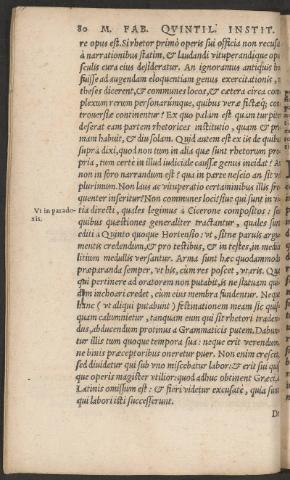 80 M. FAB. QVINTIL. INSTIT.
re opus est. Si rhetor primò operis sui officia non recusa
à narrationibus statim, & laudandi vituperandíque op
sculis cura eius desideratur. An ignoramus antiquis h
fuisse ad augendam eloquentiam genus exercitationis,
theses dicerent, & communes locos, & cætera circa com
plexum rerum personarúmque, quibus veræ fictæq;
trouersiæ continentur? Ex quo palàm est quàm turpit
deserat eam partem rhetorices institutio, quam & pri
mam habuit, & diu solam. Quid autem est ex iis de quib
suprà dixi, quod non tum in alia quæ sunt rhetorum pro
pria, tum certè in illud iudiciale causæ genus incidat?
non in foro narrandum est? qua in parte nescio an sit v
plurimum. Non laus ac vituperatio certaminibus illis fre
quenter inseritur? Non communes loci siue qui sunt in v
Vt in parado-
xis.
tia directi, quales legimus à Cicerone compositos: se
quibus quæstiones generaliter tractantur, quales sunt
editi à Quinto quoque Hortensio: vt, sitne paruis argu
mentis credendum, & pro testibus, & in testes, in mediis
litium medullis versantur. Arma sunt hæc quodammod
præparanda semper, vt his, cùm res poscet, vtaris. Qu
qui pertinere ad oratorem non putabit, is ne statuam qu
dem inchoari credet, cùm eius membra fundentur. Neque
hanc (vt aliqui putabunt) festinationem meam sic quis
quam calumnietur, tanquam eum qui sit rhetori traden
dus, abducendum protinus à Grammaticis putem. Dabun
tur illis tum quoque tempora sua: neque erit verendum
ne binis præceptoribus oneretur puer. Non enim crescet,
sed diuidetur qui sub vno miscebatur labor: & erit sui quis
que operis magister vtilior: quod adhuc obtinent Græci,
Latinis omissum est: & fieri videtur excusatè, quia sunt
qui labori isti successerunt.